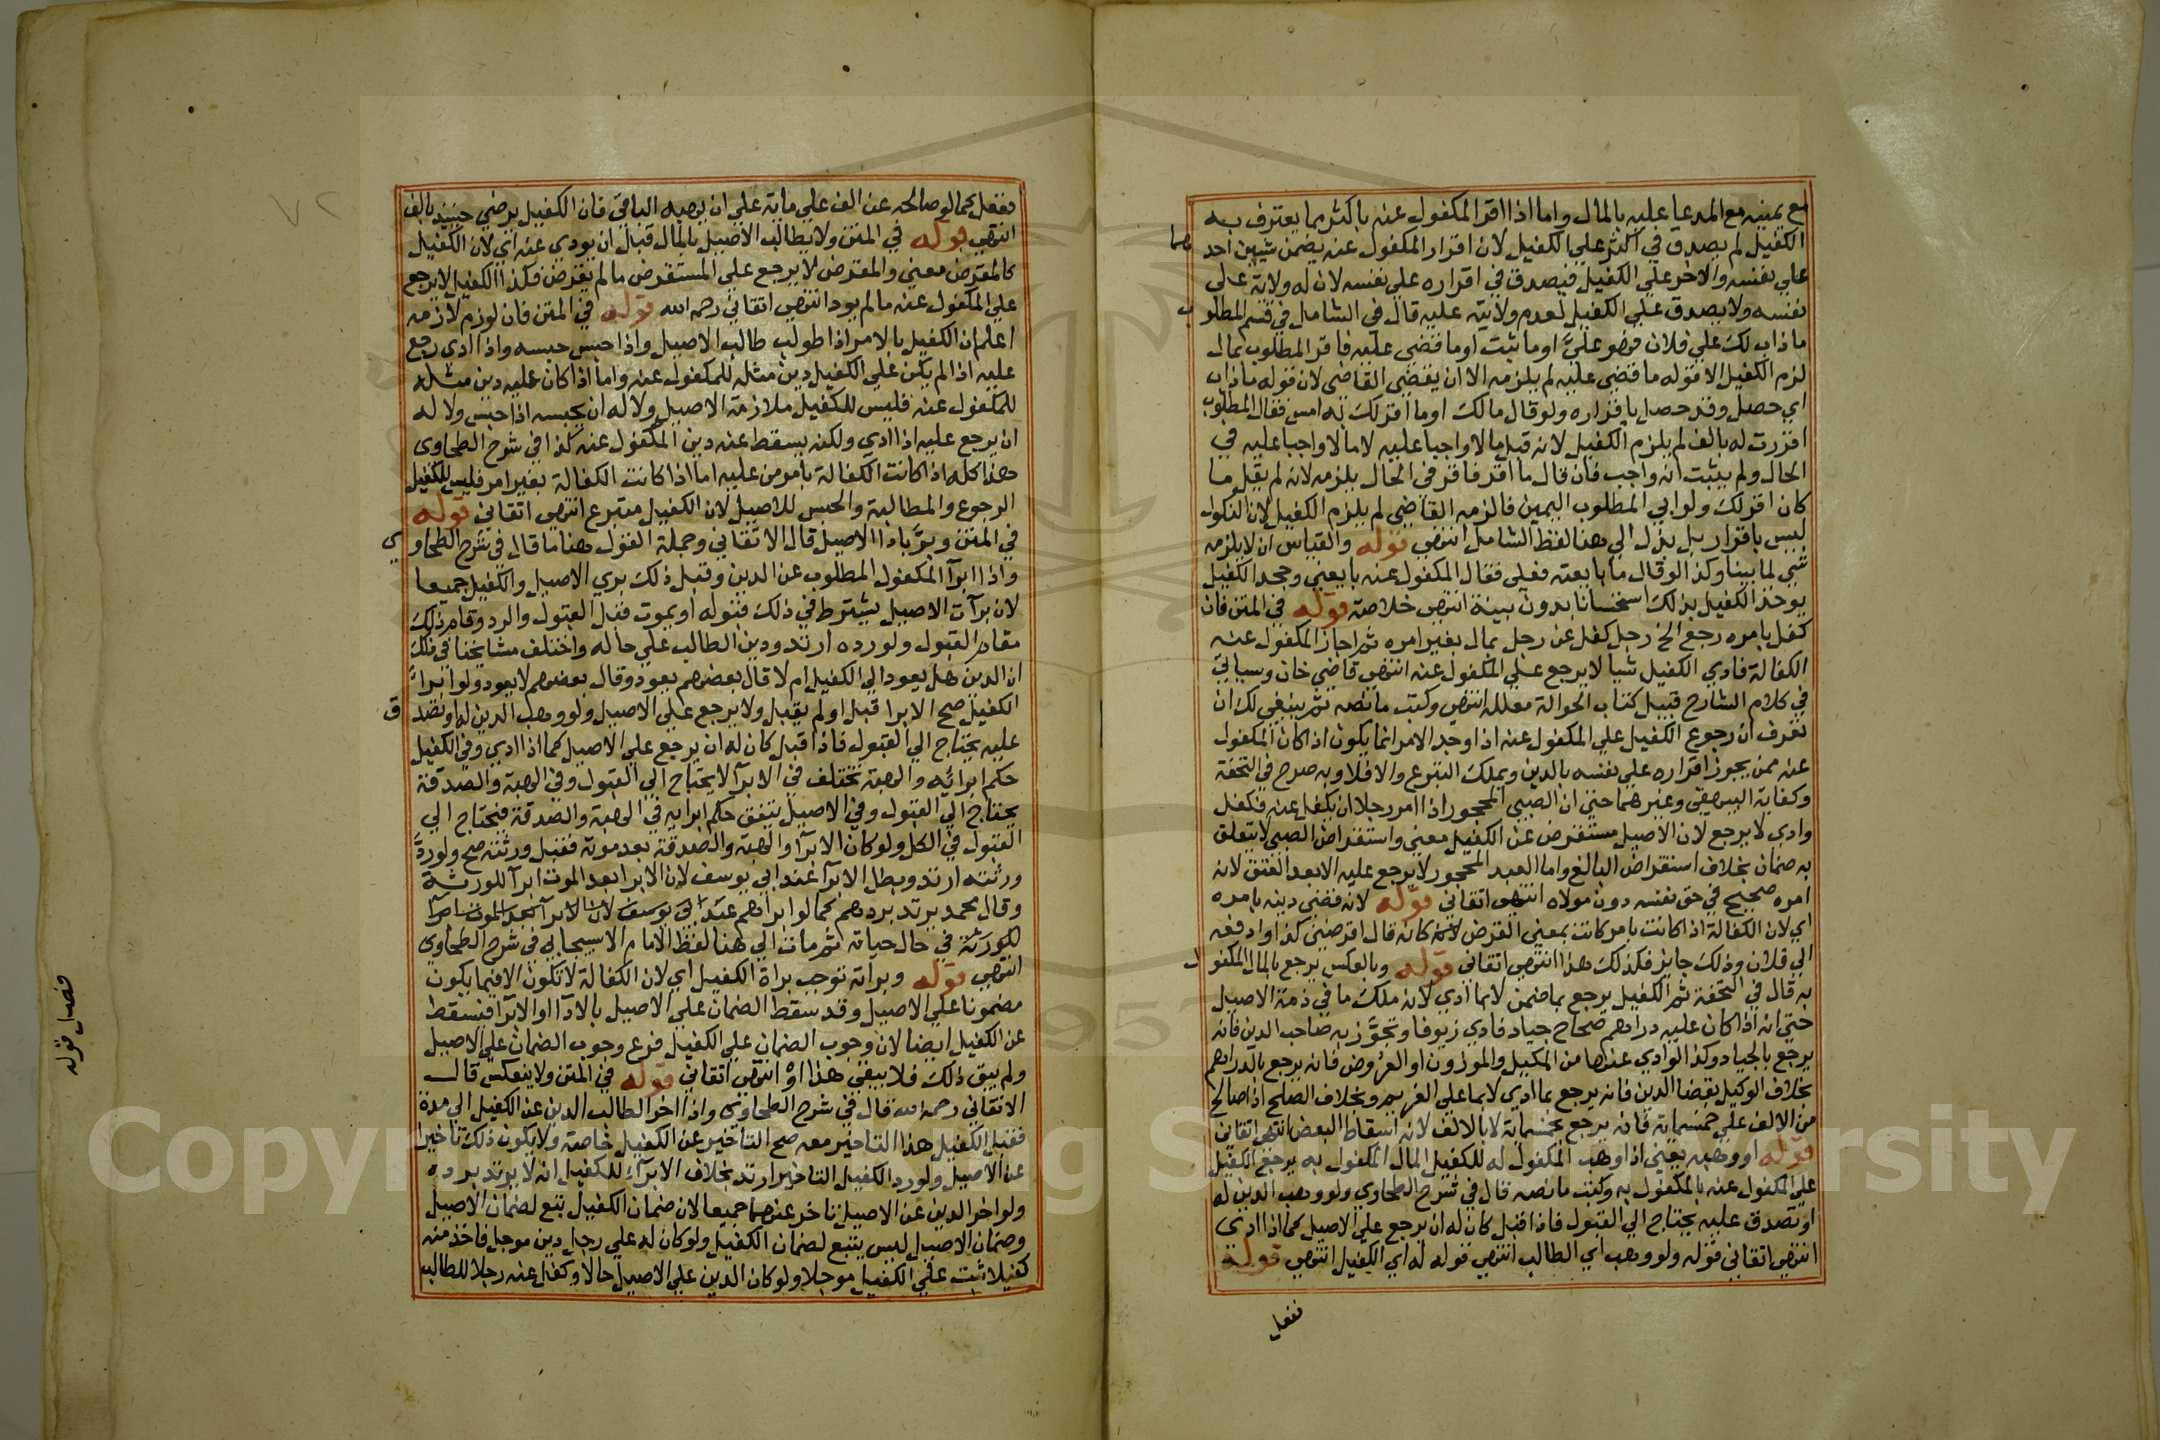 مع يمينه مع المدعا عليه بالمال واما اذا اقر المكفول عنه باكثر مما يعترف به
الكفيل لم يصدق في اكثر علي الكفيل لان اقرار المكفول عنه يضمن شيين احدهما
علي نفسه والاخر علي الكفيل فيصدق في اقراره علي نفسه لان له ولاية علي
نفسه ولا يصدق علي الكفيل لعدم ولايته عليه قال في الشامل في قسم المطلوب
ماذاب لك علي فلان فهو علي او ما ثبت او ما قضي عليه فاقر المطلوب بمال
لزم الكفيل الا قوله ما قضي عليه لم يلزمه الا ان يقضي القاضي لان قوله ماذاب
اي حصل وقد حصل باقراره ولو قال مالك او ما اقر لك به امس فقال المطلوب
اقررت له بالف لم يلزم الكفيل لانه قبل مالا واجبا عليه لا مالا واجبا عليه في
الحال ولم يثبت انه واجب فان قال ما اقر فاقر في الحال يلزمه لانه لم يقل ما
كان اقر لك ولو ابي المطلوب اليمين فالزمه القاضي لم يلزم الكفيل لان النكول
ليس باقرار بل بذل الي هنا لفظ الشامل انتهي قوله والقياس ان لا يلزمه
شي لما بينا وكذا لو قال ما بايعته فعلي فقال المكفول عنه بايعني وجحد الكفيل
يوخذ الكفيل بذلك استحسانا بدون بينة انتهى خلاصة قوله في المتن فان
كفل بامره رجع الخ رجل كفل عن رجل بمال بغير امره ثم اجاز المكفول عنه
الكفالة فادي الكفيل شيا لا يرجع علي المكفول عنه انتهى قاضي خان وسياتي
في كلام الشارح قبيل كتاب الحوالة معللا انتهي وكتب ما نصه ثم ينبغي لك ان
تعرف ان رجوع الكفيل علي المكفول عنه اذا وجد الامر انما يكون اذا كان المكفول
عنه ممن يجوز اقراره علي نفسه بالدين ويملك التبرع والا فلا وبه صرح في التحفة
وكفاية البيهقي وغيرهما حتي ان الصبي المحجور اذا امر رجلا ان يكفل عنه فكفل
وادي لا يرجع لان الاصيل مستقرض عن الكفيل معني واستقراض الصبي لا يتعلق
به ضمان بخلاف استقراض البالغ واما العبد المحجور لا يرجع عليه الا بعد العتق لانه
امره صحيح في حق نفسه دون مولاه انتهى اتقاني قوله لانه قضي دينه بامره
اي لان الكفالة اذا كانت بامر كانت بمعني القرض لانه كانه قال اقرضني كذا وادفعه
الي فلان وذلك جايز فكذلك هذا انتهي اتقاني قوله وبالعكس يرجع بالمال المكفول
به قال في التحفة ثم الكفيل يرجع بما ضمن لا بما ادي لانه ملك ما في ذمة الاصيل
حتي انه اذا كان عليه دراهم صحاح جياد فادي زيوفا وتجوز به صاحب الدين فانه
يرجع بالجياد وكذا لو ادي عنها من المكيل والموزون او العروض فانه يرجع بالدراهم
بخلاف الوكيل بقضا الدين فانه يرجع بما ادي لا بما علي الغريم وبخلاف الصلح اذا صالح
من الالف علي خمسماية فانه يرجع بخمسماية لا بالالف لانه اسقاط البعض انتهي اتقاني
قوله او وهبه يعني اذا وهب المكفول له للكفيل المال المكفول به يرجع الكفيل
علي المكفول عنه بالمكفول به وكتب ما نصه قال في شرح الطحاوي ولو وهب الدين له
او تصدق عليه يحتاج الي القبول فاذا قبل كان له ان يرجع علي الاصيل كما اذا ادي
انتهي اتقاني قوله ولو وهب اي الطالب انتهي قوله له اي الكفيل انتهي قوله
ففعل
ففعل كما لو صالحه عن الف علي ماية علي ان يوهبه الباقي فان الكفيل يرضي حينيذ بالف
انتهي قوله في المتن ولا يطالب الاصيل بالمال قبل ان يودي عنه اي لان الكفيل
كالمقرض معني والمقرض لا يرجع علي المستقرض ما لم يقرض فكذا الكفيل لا يرجع
علي المكفول عنه ما لم يود انتهي اتقاني رحمه الله قوله في المتن فان لوزم لازمه
اعلم ان الكفيل بالامر اذا طولب طالب الاصيل واذا حبس حبسه واذا ادي رجع
عليه اذا لم يكن علي الكفيل دين مثله للمكفول عنه واما اذا كان عليه دين مثله
للمكفول عنه فليس للكفيل ملازمة الاصيل ولا له ان يحبسه اذا حبس ولا له
ان يرجع عليه اذا ادي ولكنه يسقط عنه دين المكفول عنه كذا في شرح الطحاوي
هذا كله اذا كانت الكفالة بامر من عليه اما اذا كانت الكفالة بغير امر فليس للكفيل
الرجوع والمطالبة والحبس للاصيل لان الكفيل متبرع انتهى اتقاني قوله
في المتن وبري باداالاصيل قال الاتقاني وجملة القول هنا ما قال في شرح الطحاوي
واذا ابرآ المكفول المطلوب عن الدين وقبل ذلك بري الاصيل والكفيل جميعا
لان برآت الاصيل يشترط في ذلك قبوله او يموت قبل القبول والرد وقام ذلك
مقام القبول ولو رده ارتد ودين الطالب علي حاله واختلف مشايخنا في ذلك
ان الدين هل يعود الي الكفيل ام لا قال بعضهم يعود وقال بعضهم لا يعود ولو ابرا
الكفيل صح الابرا قبل او لم يقبل ولا يرجع علي الاصيل ولو وهب الدين له او تصدق
عليه يحتاج الي القبول فاذا قبل كان له ان يرجع علي الاصيل كما اذا ادي وفي الكفيل
حكم ابرائه والهبة تختلف في الابرآ لا يحتاج الي القبول وفي الهبة والصدقة
يحتاج الي القبول وفي الاصيل يتفق حكم ابرايه في الهبة والصدقة فيحتاج الي
القبول في الكل ولو كان الابرآ والهبة والصدقة بعد موته فقبل ورثته صح ولو رد
ورثته ارتد وبطل الابرآ عند ابي يوسف لان الابرا بعد الموت ابرآ للورثة
وقال محمد يرتد بردهم كما لو ابراهم عند ابي يوسف لان الابرآ بعد الموت ابرآ
للورثة في حال حياته ثم مات الي هنا لفظ الامام الاسبيجابي في شرح الطحاوي
انتهي قوله وبراته توجب براة الكفيل اي لان الكفالة لا تكون الا فيما يكون
مضمونا علي الاصيل وقد سقط الضمان علي الاصيل بالادآ او الابرآ فسقط
عن الكفيل ايضا لان وجوب الضمان علي الكفيل فرع وجوب الضمان علي الاصيل
ولم يبق ذلك فلا يبقي هذا انتهى اتقاني قوله في المتن ولا ينعكس قال
الاتقاني رحمه الله قال في شرح الطحاوي واذا اخر الطالب الدين عن الكفيل الي مدة
فقبل الكفيل هذا التاخير معه صح التاخير عن الكفيل خاصة ولا يكون ذلك تاخيرا
عن الاصيل ولو رد الكفيل التاخير ارتد بخلاف الابرآء للكفيل انه لا يرتد برده
ولو اخر الدين عن الاصيل تاخر عنهما جميعا لان ضمان الكفيل تبع لضمان الاصيل
وضمان الاصيل ليس يتبع لضمان الكفيل ولو كان له علي رجل دين موجل فاخذ منه
كفيلا ثبت علي الكفيل موجلا ولو كان الدين علي الاصيل حالا وكفل عنه رجلا للطالب
فصل قوله
٧٢
Copyright © King Saud University